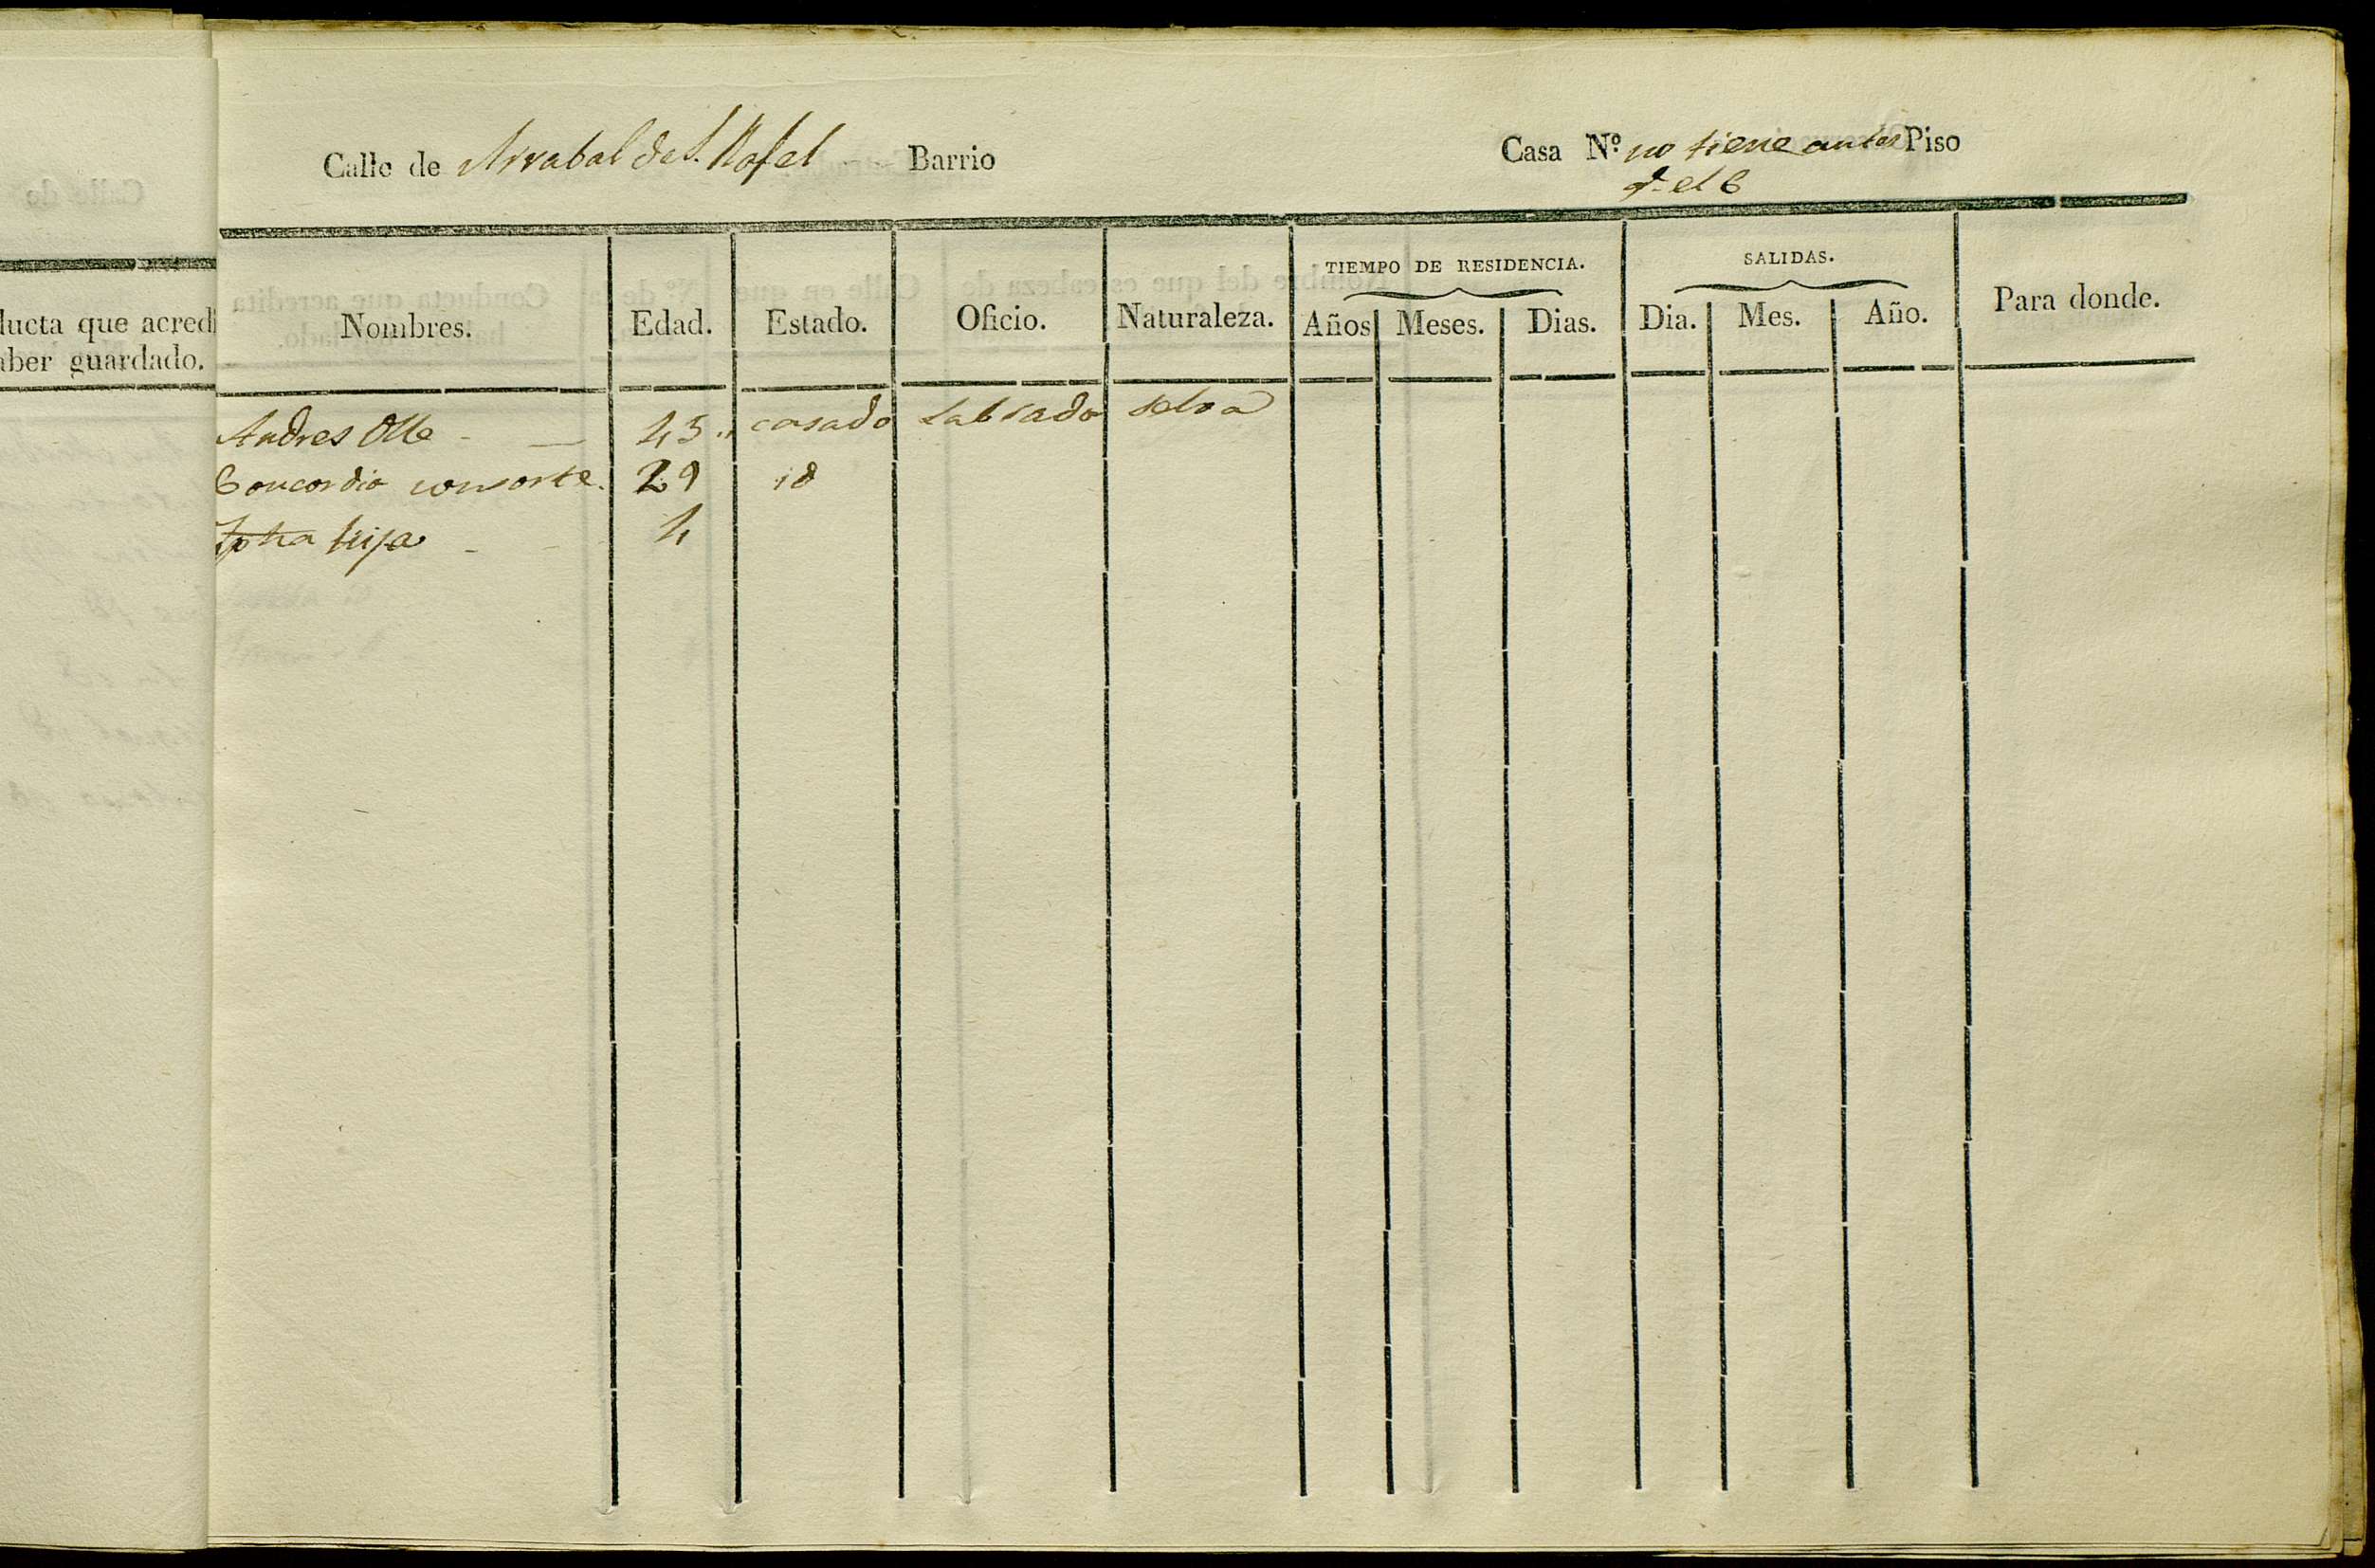 Calle de Arrabal de S. Rafel Barrio Casa Nº no tiene antes Piso
q.e el 6
ducta que acredi
aber guardado.
Nombres. Edad. Estado. Oficio. Naturaleza. TIEMPO DE RESIDENCIA. SALIDAS. Para donde.
Años Meses. Dias. Dia. Mes. Año.
Andres Olle 45 casado Labrado Selva
Concordia consorte. 29 id
hija 4